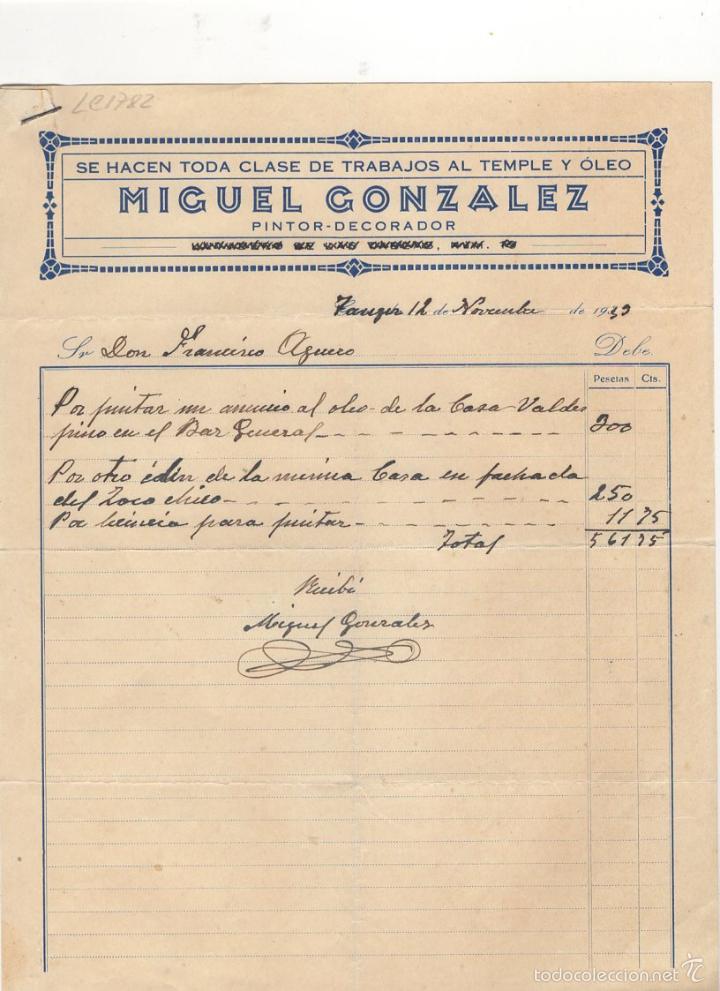 LC1782
SE HACEN TODA CLASE DE TRABAJOS AL TEMPLE Y ÓLEO
MIGUEL GONZALEZ
PINTOR-DECORADOR
Tanger 12 de Novembre de 1933
Sr Don Francisco Aguero Debe
Pesetas Cts.
Por pintar un anuncio al oleo de la Casa Valdes
pino en el Bar General 300
Por otro édin de la misma Casa en fachada
del Zoco chico 250
Por licincia para pintar 11 75
Total 561 75
Recibí
Miguel Gonzalez
todocoleccion.net